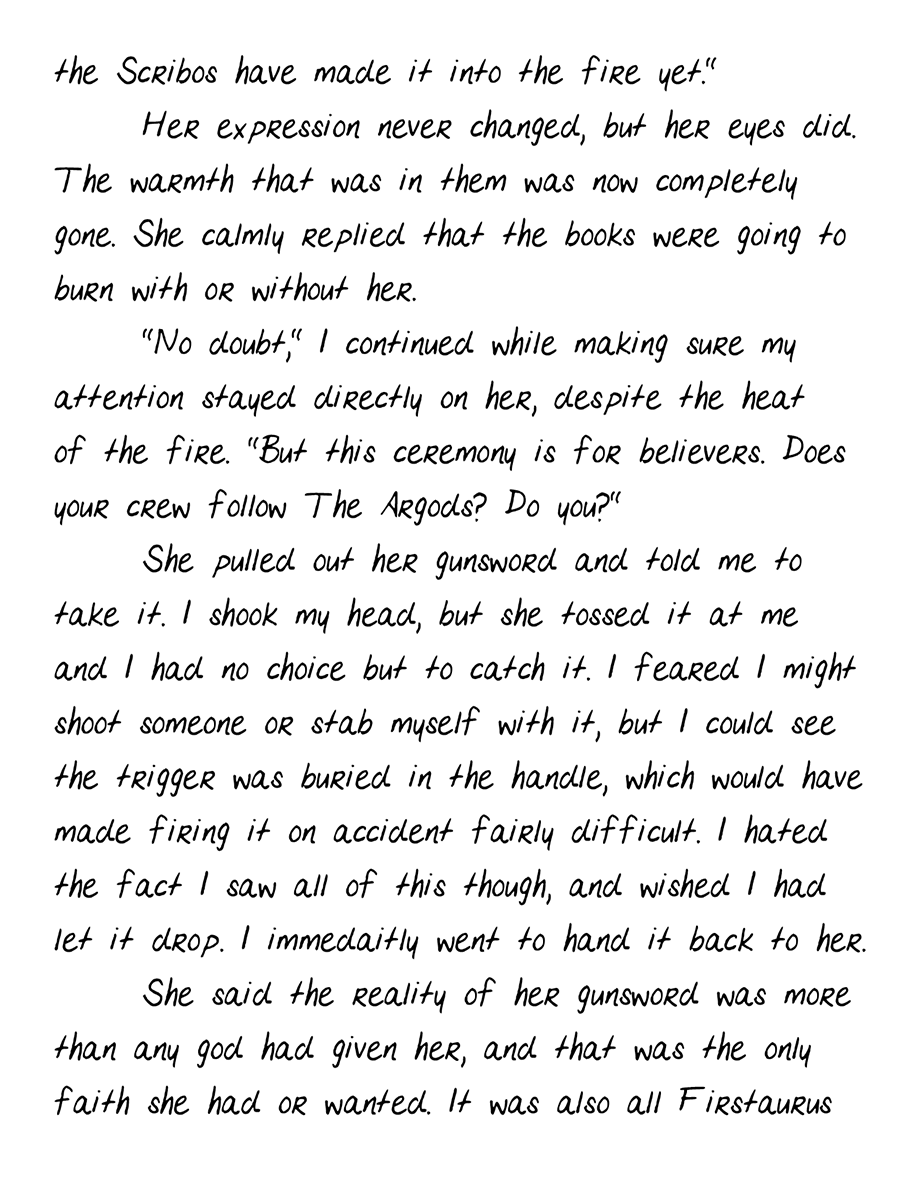 the Scribos have made it into the fire yet."
Her expression never changed, but her eyes did.
The warmth that was in them was now completely
gone. She calmly replied that the books were going to
burn with or without her.
"No doubt," I continued while making sure my
attention stayed directly on her, despite the heat
of the fire. "But this ceremony is for believers. Does
your crew follow The Argods? Do you?"
She pulled out her gunsword and told me to
take it. I shook my head, but she tossed it at me
and I had no choice but to catch it. I feared I might
shoot someone or stab myself with it, but I could see
the trigger was buried in the handle, which would have
made firing it on accident fairly difficult. I hated
the fact I saw all of this though, and wished I had
let it drop. I immedaitly went to hand it back to her.
She said the reality of her gunsword was more
than any god had given her, and that was the only
faith she had or wanted. It was also all Firstaurus